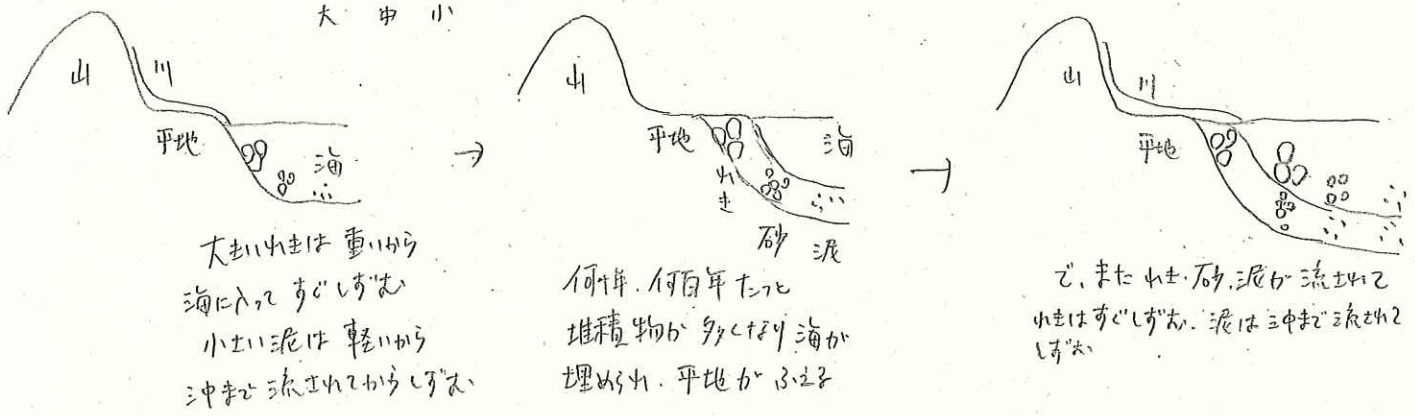 大 中 小
山
川
平地
海
→
山
平地
海
れき
砂
泥
→
山
川
平地
大きいれきは 重いから
海に入って すぐしずむ
小さい泥は 軽いから
沖まで 流されてからしずむ
何十年、何百年 たつと
堆積物が 多くなり 海が
埋められ、平地が ふえる
で、また れき・砂、泥が 流されて
れきはすぐしずむ、泥は沖まで流されて
しずむ